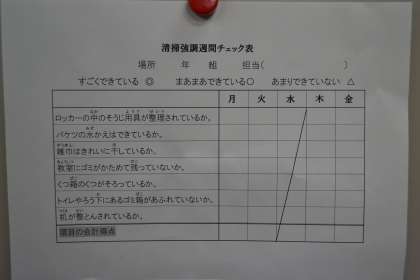 清掃強調週間チェック表
場所　　年　組　担当(　　　　　　)
すごくできている ◎　まあまあできている〇　あまりできていない △
月 火 水 木 金
ロッカーの中のそうじ用具が整理されているか。
バケツの水かえはできているか。
雑巾はきれいに干しているか。
教室にゴミがかためて残っていないか。
くつ箱のくつがそろっているか。
トイレやろう下にあるゴミ箱があふれていないか。
机が整とんされているか。
項目の合計得点